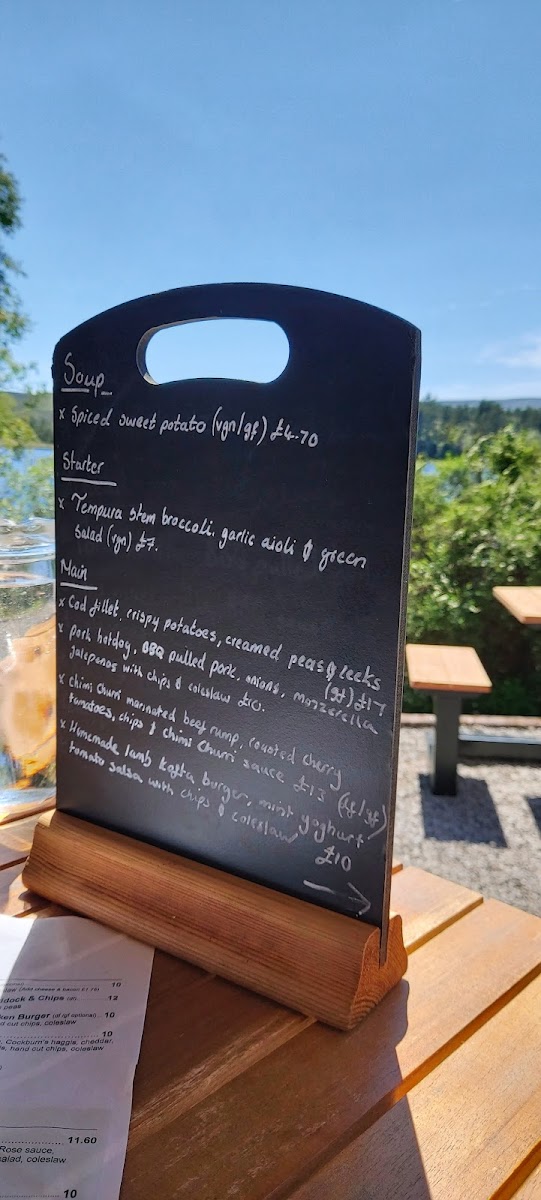 Soup
x Spiced sweet potato (vgn/gf) £4.70
Starter
x Tempura stem broccoli, garlic aioli & green
Salad (vgn) £7.
Main
x Cod fillet, crispy potatoes, creamed peas & leeks
(gf) £17
x Pork hotdog, BBQ pulled pork, onions, mozzerella
Jalepenos with chips & coleslaw £10.
x Chimi Churri marinated beef rump, roasted cherry
tomatoes, chips & chimi churri sauce £13 (df/gf)
x Homemade lamb kofta burger, mint yoghurt
tomato salsa with chips & coleslaw
£10
10
slaw (Add cheese & bacon £1.75)
ddock & Chips (df) 12
n peas
ken Burger (df /gf optional) 10
d cut chips, coleslaw
10
, Cockburn's haggis, cheddar,
s, hand cut chips, coleslaw
11.60
Rose sauce,
salad, coleslaw
10